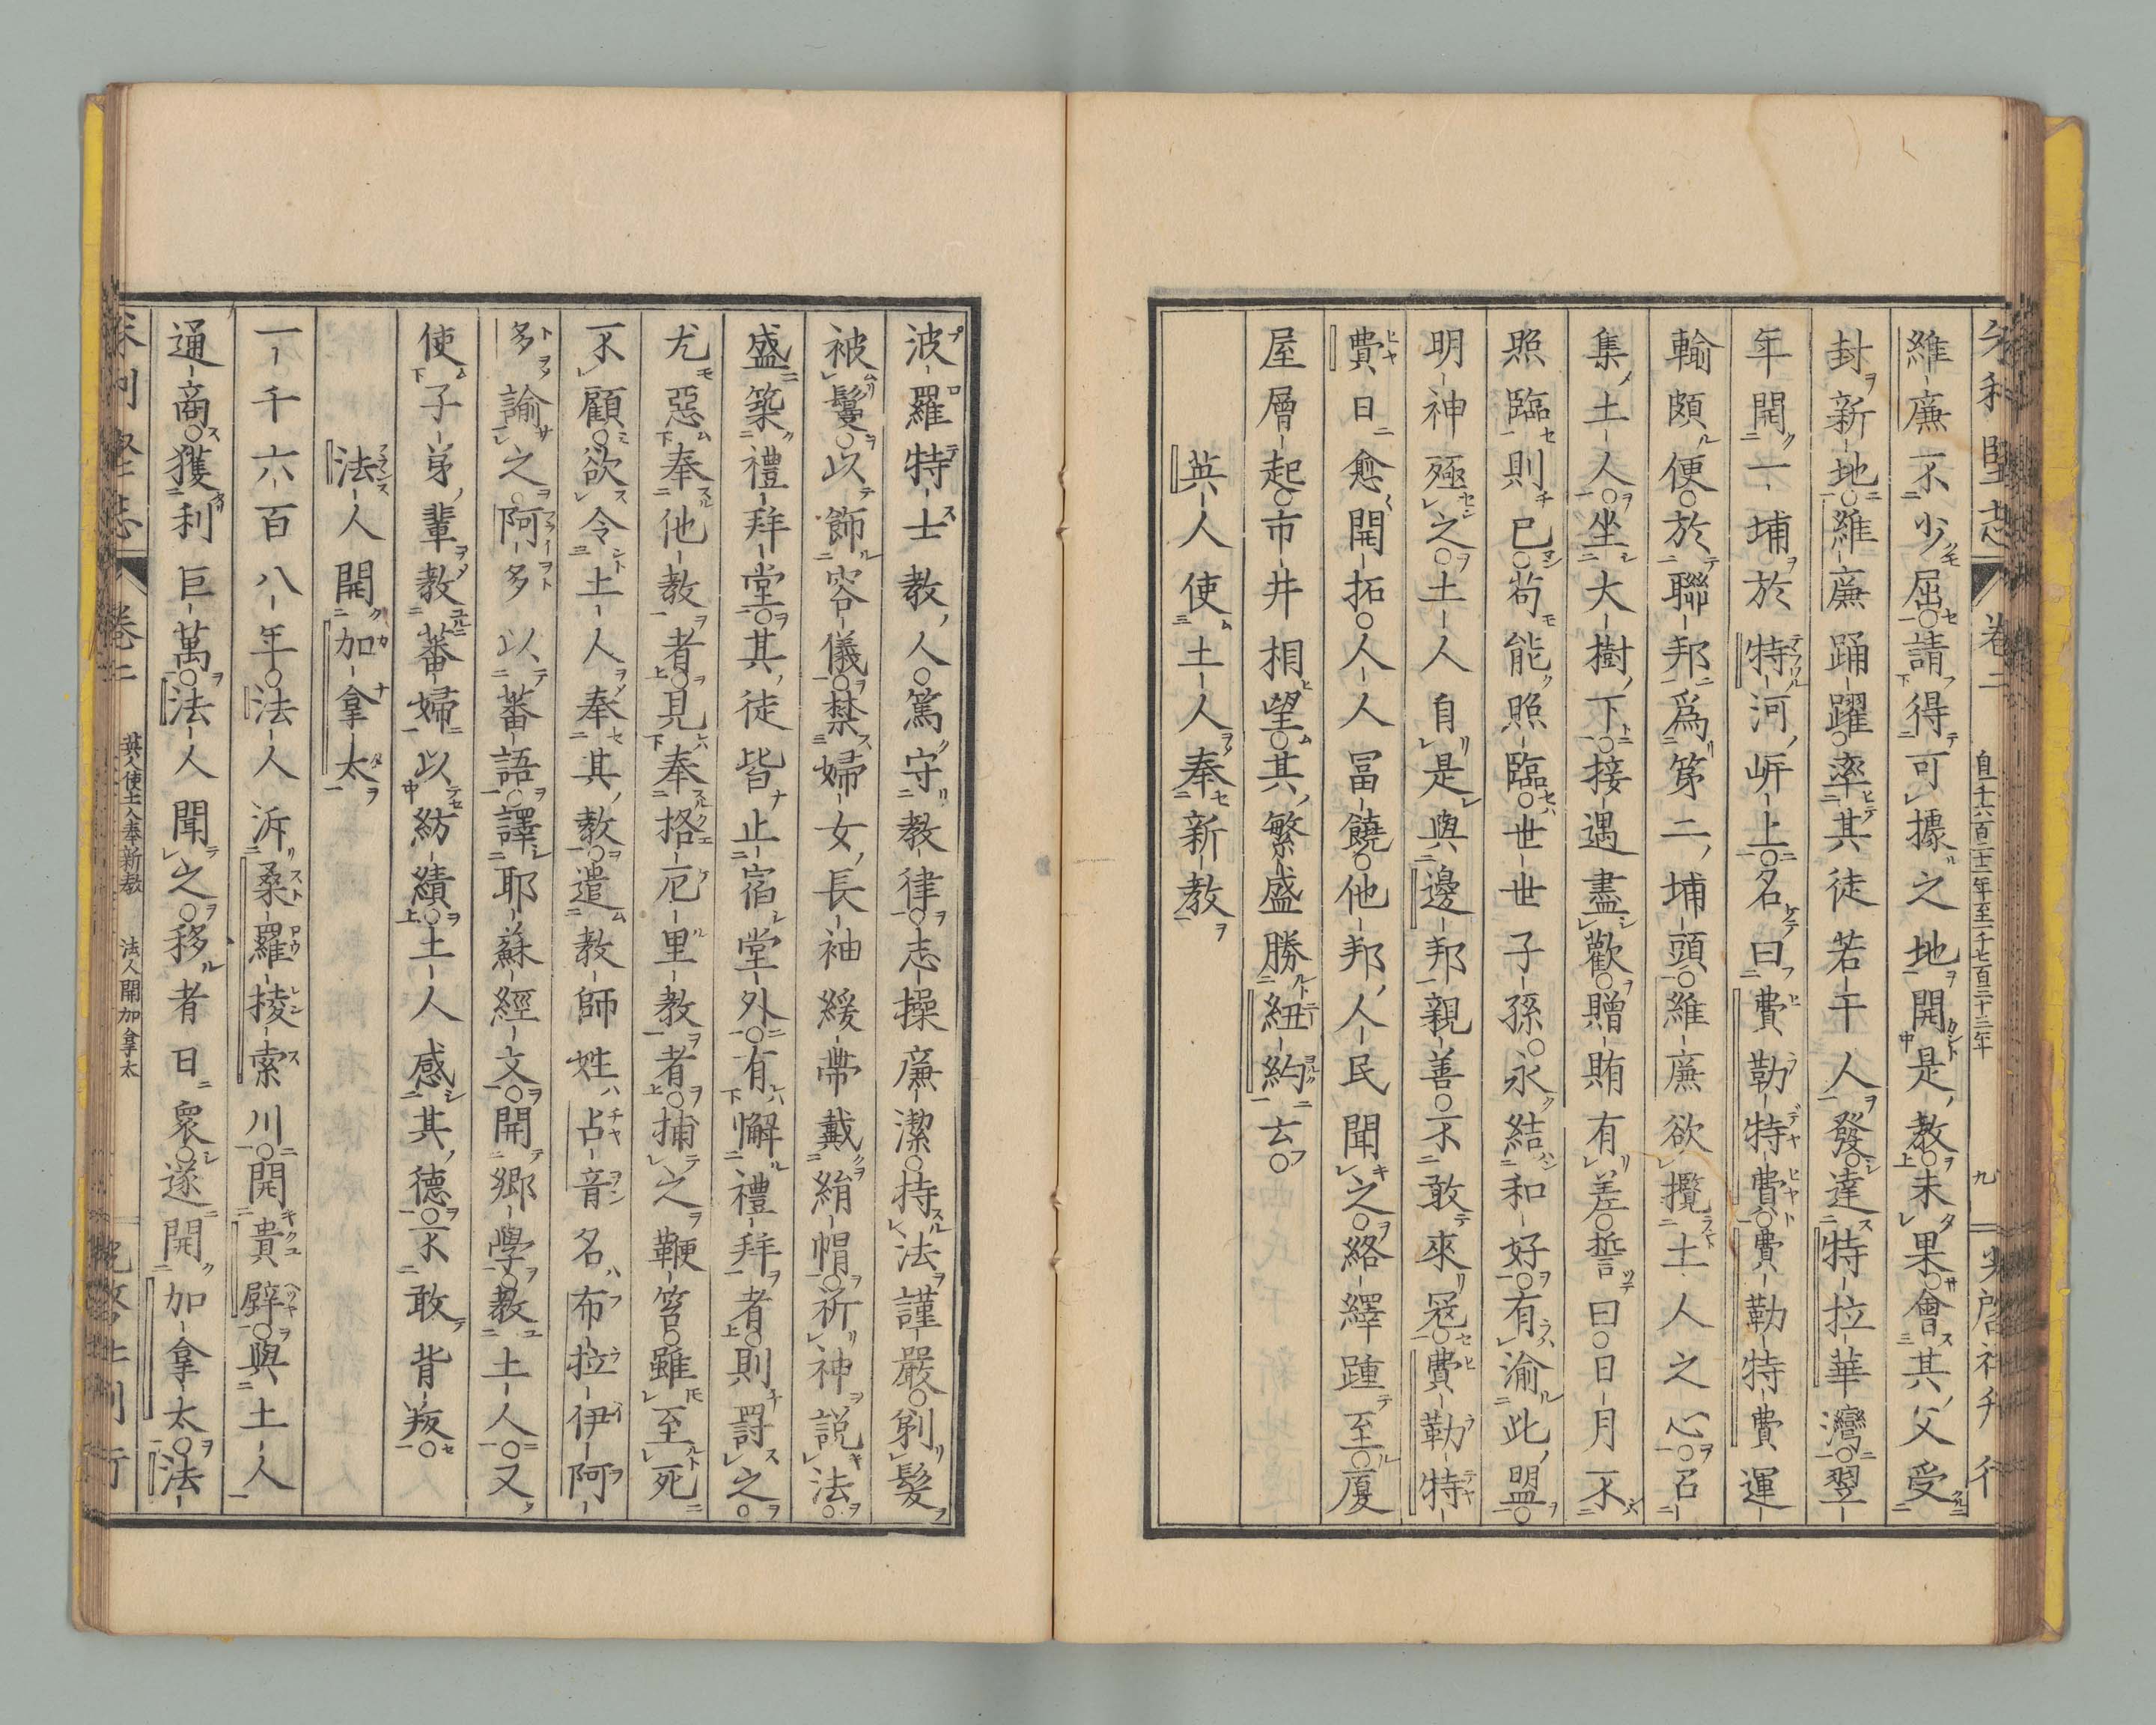 卷二　自一千六百二十二年至一千七百三十三年　九
維廉不少屈請得可據之地開是教未果會其父受
封新地維廉踊躍率其徒若干人發達特拉華灣翌
年開一埔於特河岍上名曰費勒特費費勒特費運
輸頗便於聯邦爲第二埔頭維廉欲攬土人之心召
集土人坐大樹下接遇盡歡贈賄有差誓曰日月不
照臨則已苟能照臨世世子孫永結和好有渝此盟
明神殛之土人自是與邊邦親善不敢來冦費勒特
費日愈開拓人人冨饒他邦人民聞之絡繹踵至廈
屋層起市井相望其繁盛勝紐約云
英人使土人奉新教
波羅特士教人篤守教律志操廉潔持法謹嚴剃髮
被鬘以飾容儀禁婦女長袖緩帶戴絹帽祈神説法
盛築禮拜堂其徒皆止宿堂外有懈禮拜者則罸之
尤惡奉他教者見奉挌厄里教者捕之鞭笞雖至死
不顧欲令土人奉其教遣教師姓占音名布拉伊阿
多諭之阿多以蕃語譯耶蘇經文開鄉學教土人又
使子弟輩教蕃婦以紡績土人感其德不敢背叛
法人開加拿太
一千六百八年法人泝桑羅掕索川開貴辟與土人
通商獲利巨萬法人聞之移者日衆遂開加拿太法
卷二　英人使土人奉新教　法人開加拿太